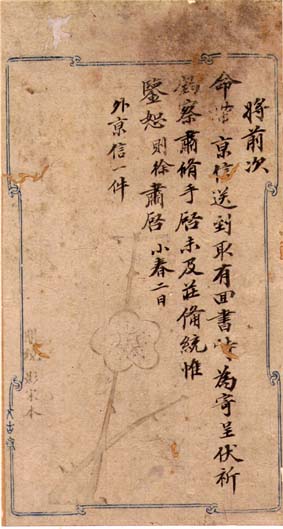 將前次
命京信送到取有回書為寄呈伏祈
鈞察肅脩手啓未及莊備統惟
鑒恕則徐肅啓 小春二日
外京信一件
影宋本